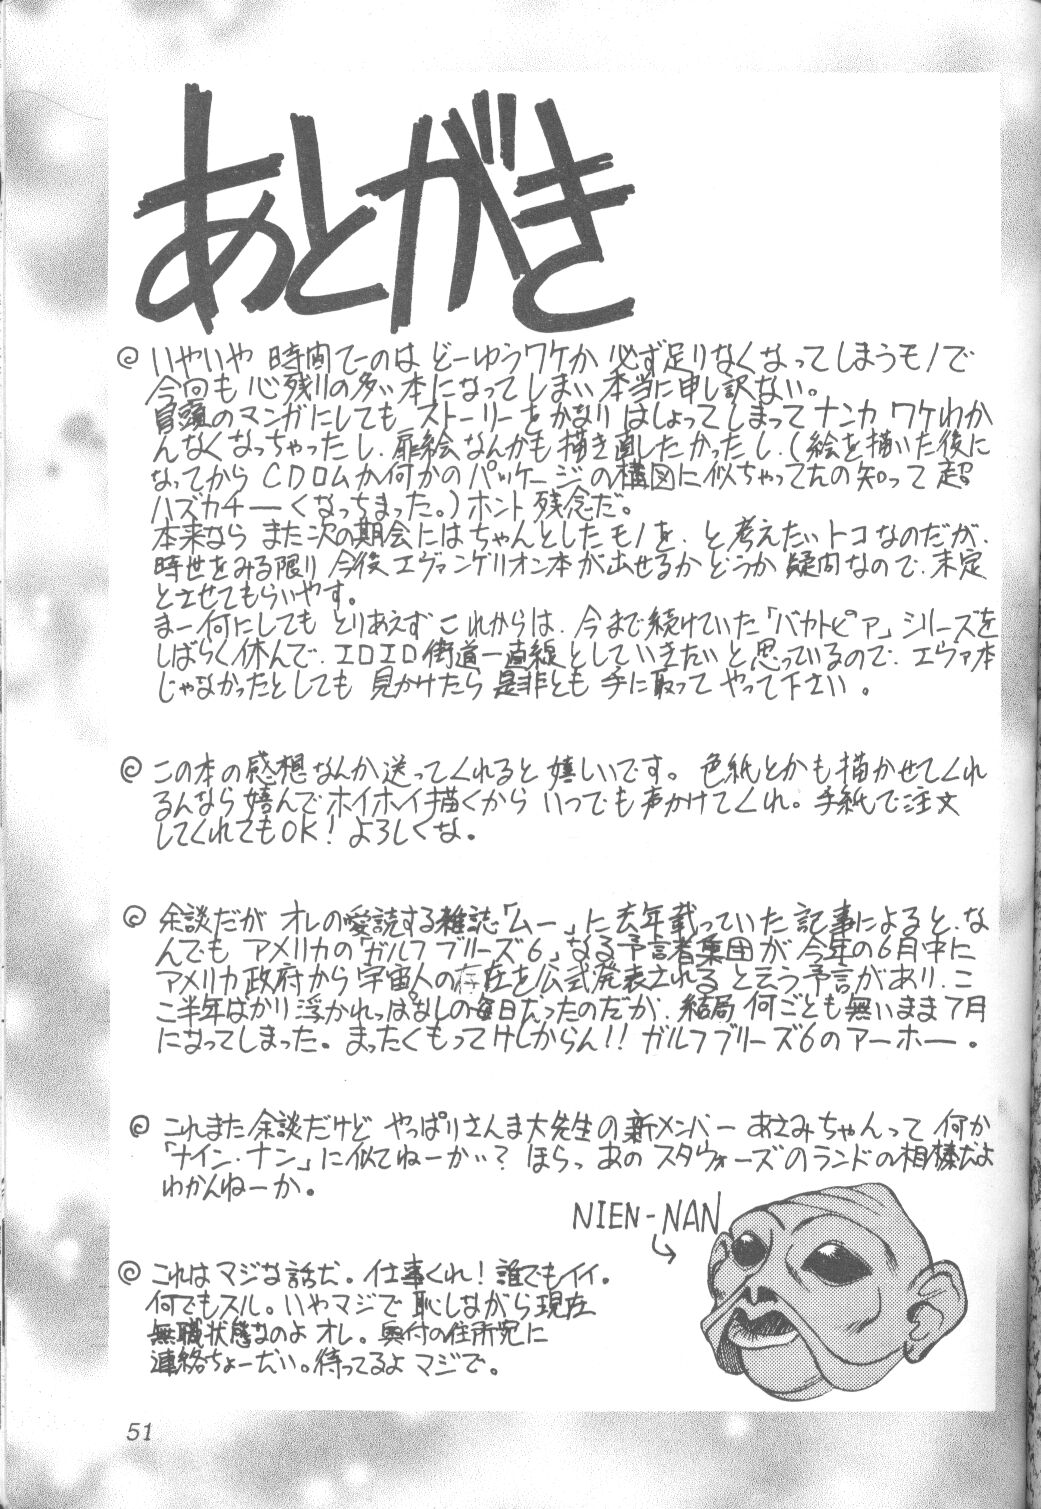 あとがき
いやいや 時間てーのは どーゆうワケか 必ず足りなくなってしまうモノで
今回も 心残りの多い本になってしまい 本当に申し訳ない。
冒頭のマンガにしても ストーリーをかなり はしょってしまって ナンカ ワケわか
んなくなっちゃったし、扉絵なんかも 描き直したかったし、(絵を描いた後に
なってから CDロムか何かのパッケージの構図に似ちゃってんの知って 超
ハズカチーくなっちまった。)ホント 残念だ。
本来なら また次の期会にはちゃんとしたモノを、と、考えたいトコなのだが、
時世をみる限り 今後 エヴァンゲリオン本が出せるかどうか 疑問なので、未定
とさせてもらいやす。
まー何にしても とりあえず これからは、今まで続けていた「バカトピア」シリーズを
しばらく休んで、エロエロ街道一直線としていきたいと思っているので、エヴァ本
じゃなかったとしても 見かけたら 是非とも 手に取って やって下さい。
この本の感想なんか送ってくれると 嬉しいです。色紙とかも描かせてくれ
るんなら 嬉んでホイホイ描くから いつでも声かけてくれ。手紙で注文
してくれてもOK! よろしくな。
余談だが オレの愛読する雑誌「ムー」に去年載っていた記事によると、な
んでも アメリカの「ガルフブリーズ6」なる予言者集団が 今年の6月中に
アメリカ政府から 宇宙人の存在を公式発表される と云う予言があり、こ
こ半年ばかり 浮かれっぱなしの毎日だったのだが、結局 何ごとも無いまま 7月
になってしまった。まったくもってけしからん!! ガルフブリーズ6のアーホー。
これまた余談だけど やっぱりさんま大先生の新メンバー あさみちゃんって 何か
「ナイン・ナン」に似てねーかい? ほらっ あの スタウォーズのランドの相棒だよ
わかんねーか。
NIEN-NAN
これは マジな話だ。仕事くれ! 誰でもイイ。
何でもスル。いやマジで 恥しながら 現在
無職状態なのよ オレ。奥付の住所宛に
連絡ちょーだい。待ってるよ マジで。
51